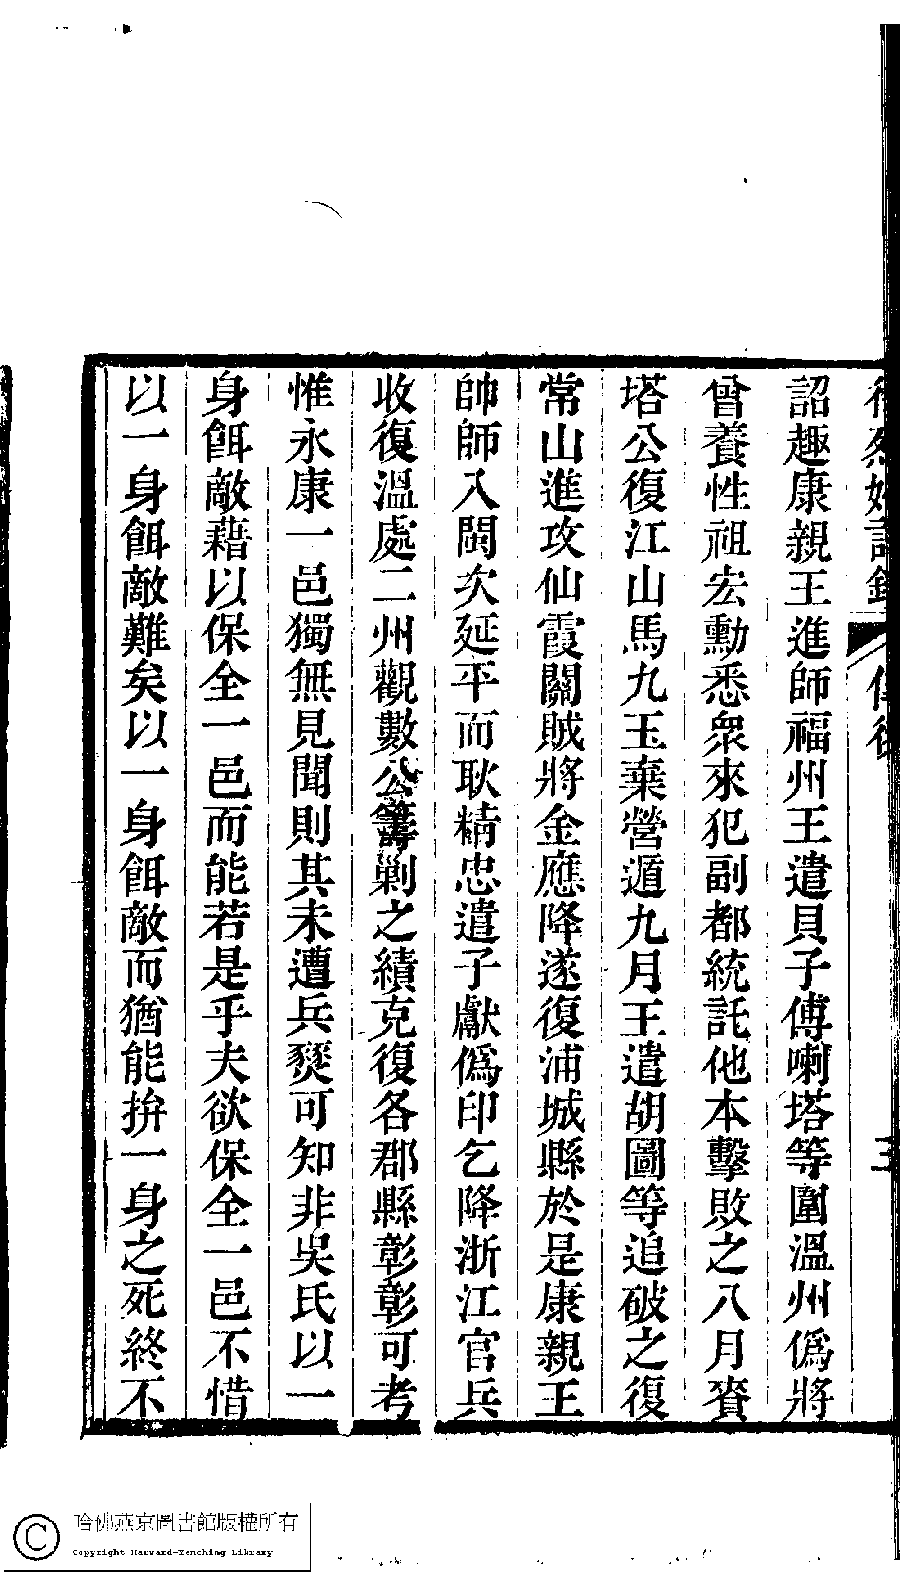 詔趣康親王進師福州王遣貝子傅喇塔等圍溫州僞將
曾養性祖宏勳悉衆來犯副都統託他本擊敗之八月賚
塔公復江山馬九玉棄營遁九月王遣胡圖等追破之復
常山進攻仙霞關賊將金應降遂復浦城縣於是康親王
帥師入閩次延平而耿精忠遣子獻僞印乞降浙江官兵
收復溫處二州觀數公籌剿之績克復各郡縣彰彰可考
惟永康一邑獨無見聞則其未遭兵燹可知非吳氏以一
身餌敵藉以保全一邑而能若是乎夫欲保全一邑不惜
以一身餌敵難矣以一身餌敵而猶能拚一身之死終不
哈佛燕京圖書館版權所有
Copyright Harvard-Yenching Library